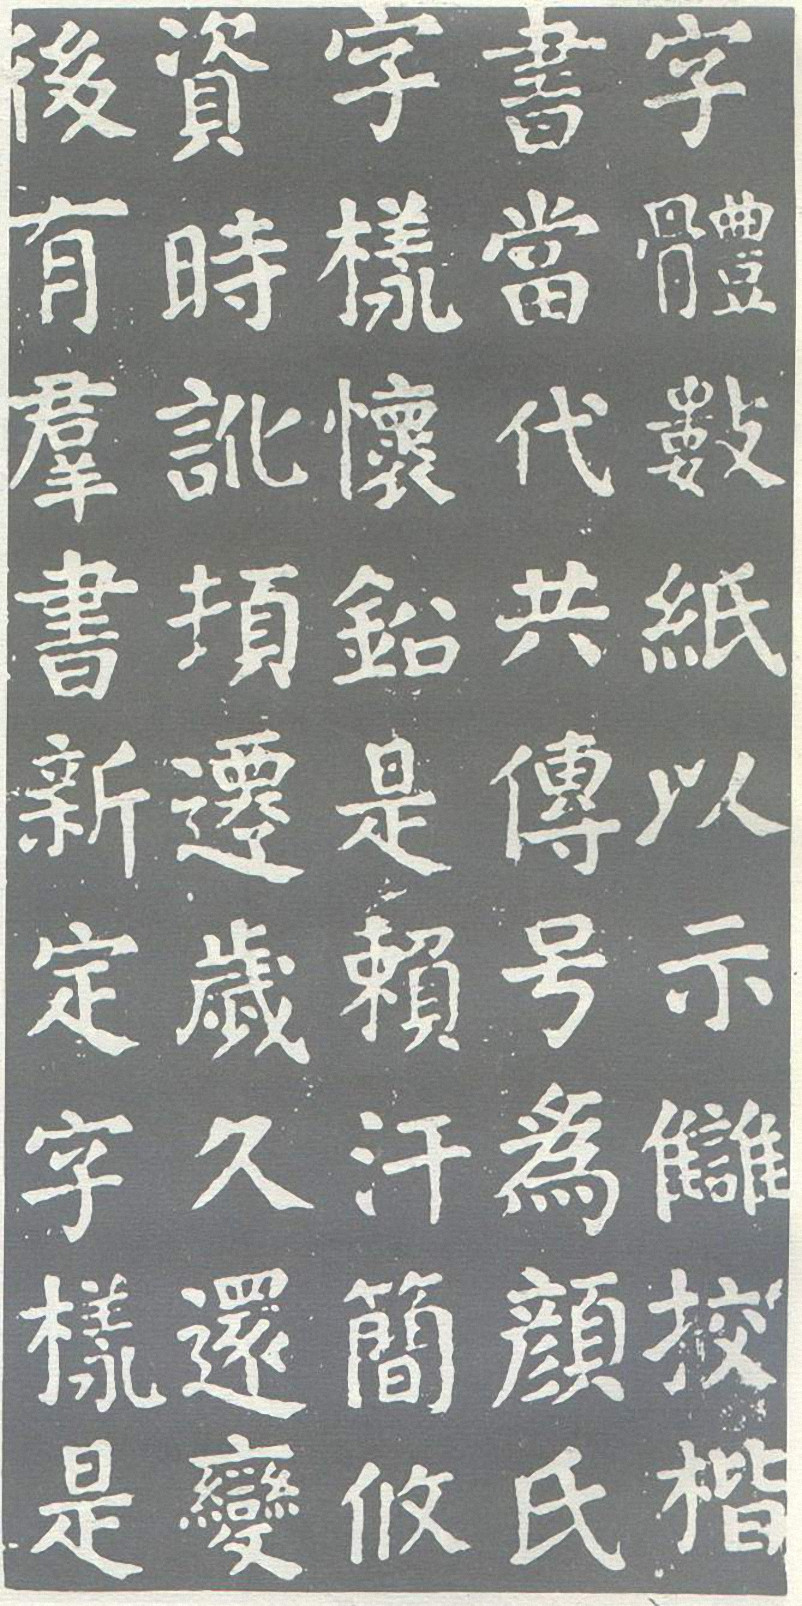 字體數紙以示讎挍楷
書當代共傳号為顔氏
字樣懷鈆是賴汗簡攸
資時訛頓遷歲久還變
後有羣書新定字樣是